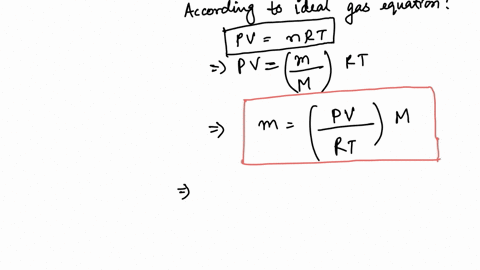 According to ideal gas equation:
PV = nRT
⇒ PV = (m/M) RT
⇒ m = (PV/RT) M
⇒